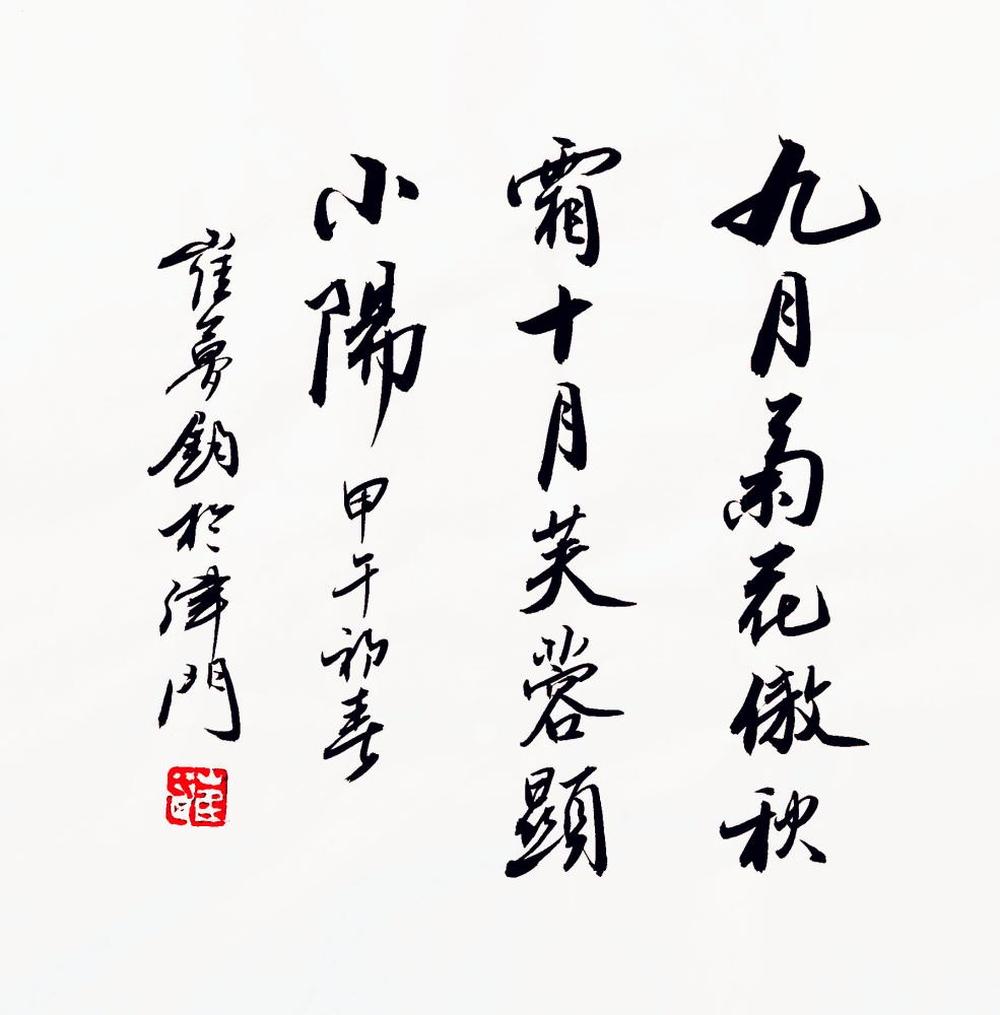 九月菊花傲秋
霜十月芙蓉顯
小陽 甲午初春
崔夢鈞於津門
崔